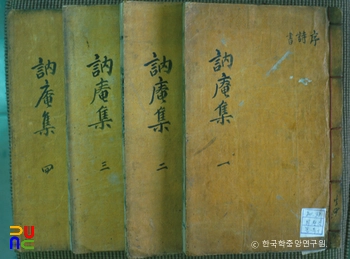 訥庵集 四
訥庵集 三
訥庵集 二
訥庵集 一
序
詩
書
© 한국학중앙연구원